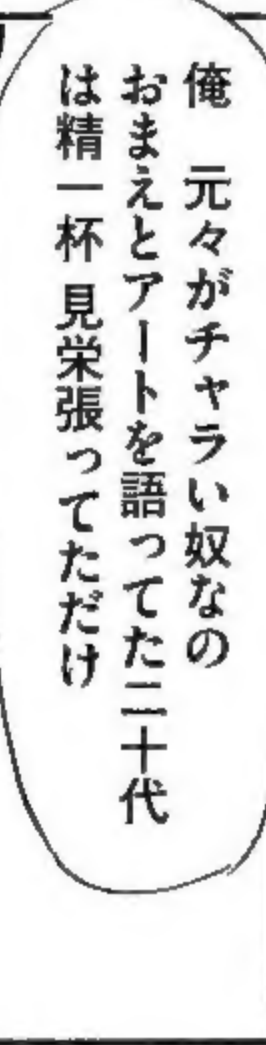 俺　元々がチャラい奴なの
おまえとアートを語ってた二十代
は精一杯 見栄張ってただけ